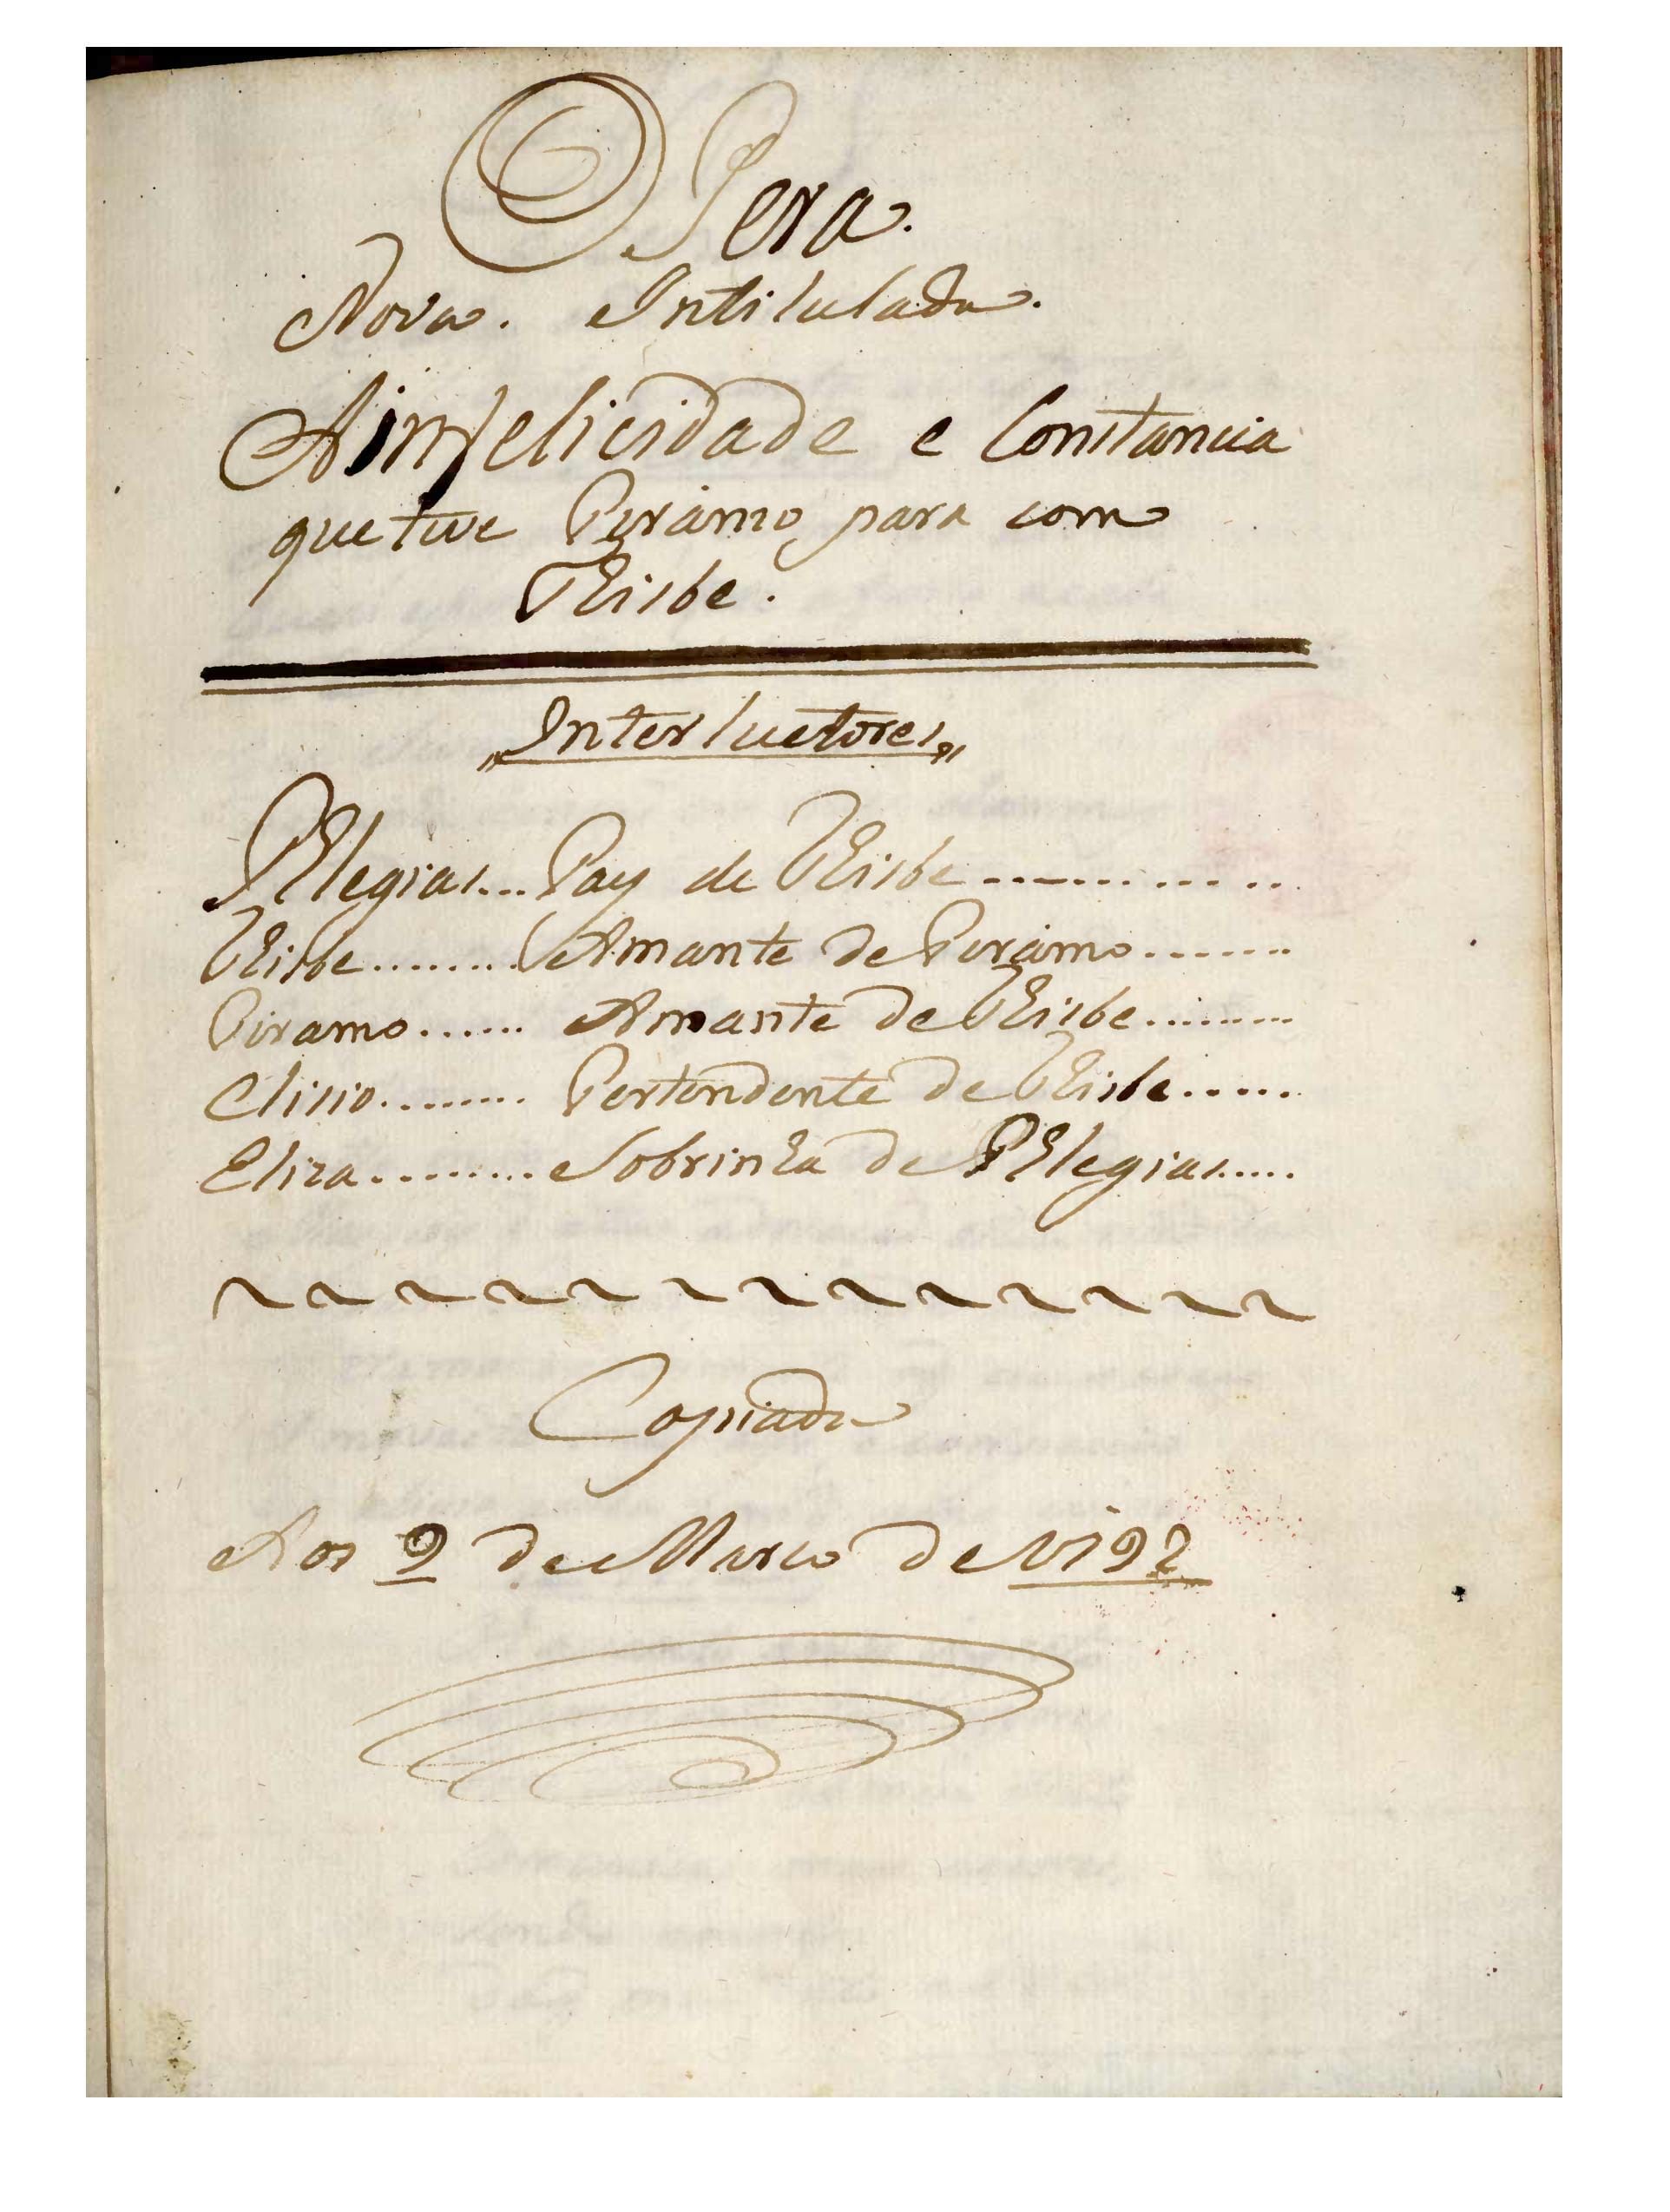 OPera.
Nova. Intitulada.
Ainfelicidade e Constancia
que tive Pyramo para com
Thisbe.
"Interluctores"
Phlegias... Pay de Thisbe............
Thisbe......... Amante de Piramo.......
Piramo...... Amante de Thisbe.........
Clisio......... Pertendente de Thisbe......
Eliza......... Sobrinha de Phlegias.....
Copiada
Aos 9 de Marco de 1792